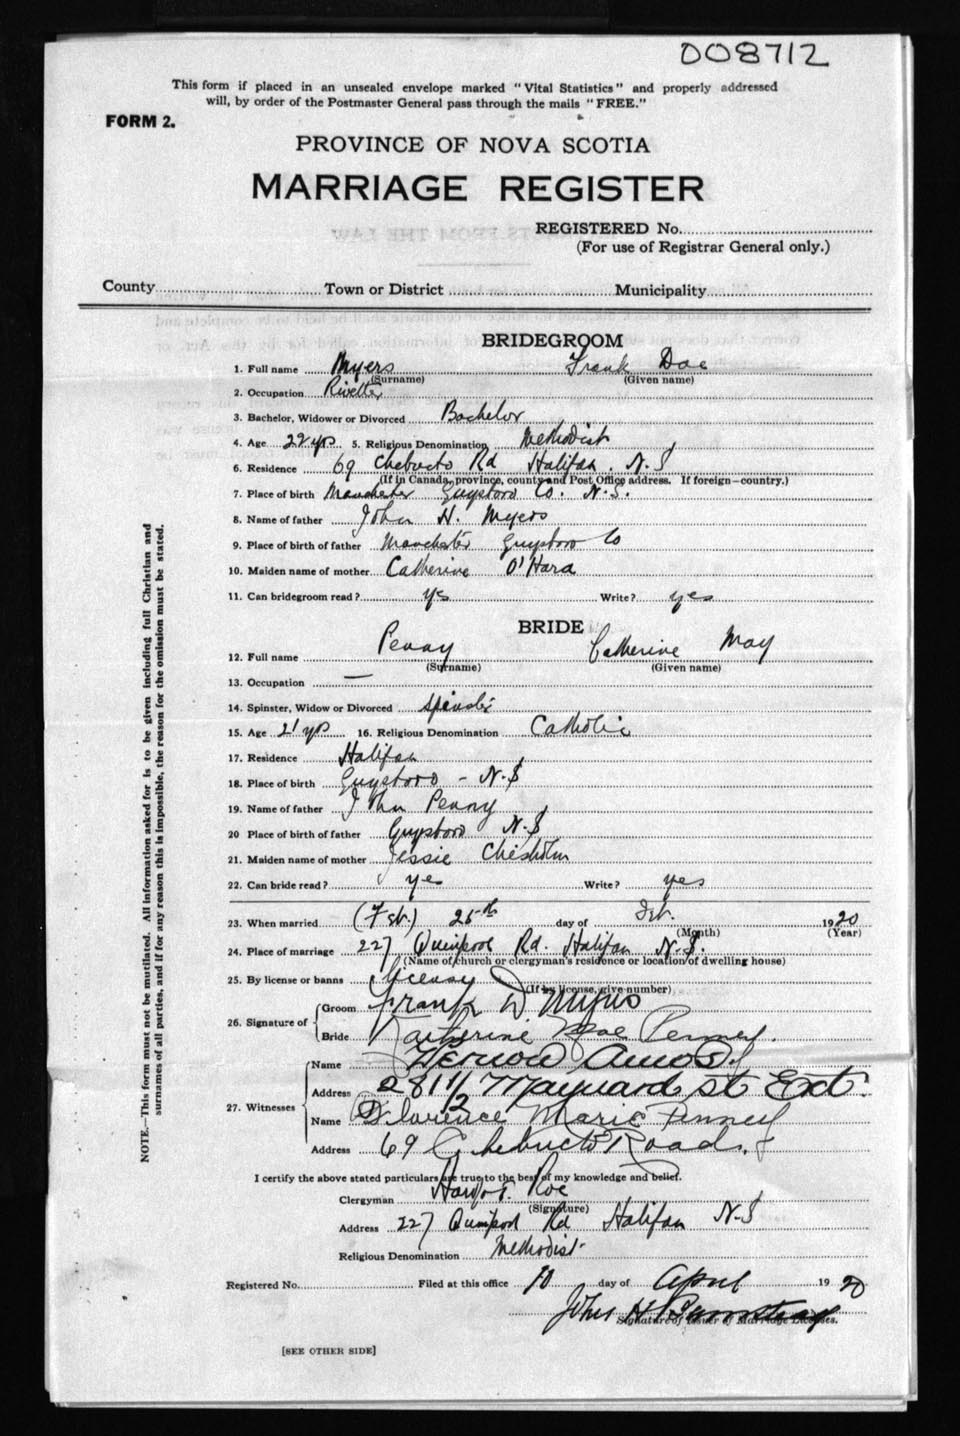 008712
This form if placed in an unsealed envelope marked "Vital Statistics" and properly addressed
will, by order of the Postmaster General pass through the mails "FREE."
FORM 2.
PROVINCE OF NOVA SCOTIA
MARRIAGE REGISTER
REGISTERED No.
(For use of Registrar General only.)
County Town or District Municipality
BRIDEGROOM
1. Full name Myers Frank Doe
(Surname) (Given name)
2. Occupation Rivetter
3. Bachelor, Widower or Divorced Bachelor
4. Age 22 yrs 5. Religious Denomination Methodist
6. Residence 69 Chebucto Rd Halifax. N.S
(If in Canada, province, county and Post Office address. If foreign—country.)
7. Place of birth Manchester Guysboro Co. N.S.
8. Name of father John H. Myers
9. Place of birth of father Manchester Guysboro Co
10. Maiden name of mother Catherine O'Hara
11. Can bridegroom read? yes Write? yes
BRIDE
12. Full name Penny Catherine May
(Surname) (Given name)
13. Occupation —
14. Spinster, Widow or Divorced Spinster
15. Age 21 yrs 16. Religious Denomination Catholic
17. Residence Halifax
18. Place of birth Guysboro - N.S
19. Name of father John Penny
20 Place of birth of father Guysboro N.S
21. Maiden name of mother Jessie Chisholm
22. Can bride read? yes Write? yes
23. When married (Feb.) 25th day of Feb. 1920
(Month) (Year)
24. Place of marriage 227 Quinpool Rd. Halifax N.S.
(Name of church or clergyman's residence or location of dwelling house)
25. By license or banns License
(If by license, give number)
26. Signature of Groom Frank D. Myers
Bride Katherine Mae Penney.
27. Witnesses Name Amos
Address 281 1/2 Maynard St Ext.
Name Florence Marie Penney
Address 69 Chebucto Road.
I certify the above stated particulars are true to the best of my knowledge and belief.
Clergyman Roe
(Signature)
Address 227 Quinpool Rd Halifax N.S
Religious Denomination Methodist
Registered No. Filed at this office 10 day of April 1920
John H
Signature of Issuer of Marriage Licenses.
[SEE OTHER SIDE]
NOTE.—This form must not be mutilated. All information asked for is to be given including full Christian and
surnames of all parties, and if for any reason this is impossible, the reason for the omission must be stated.